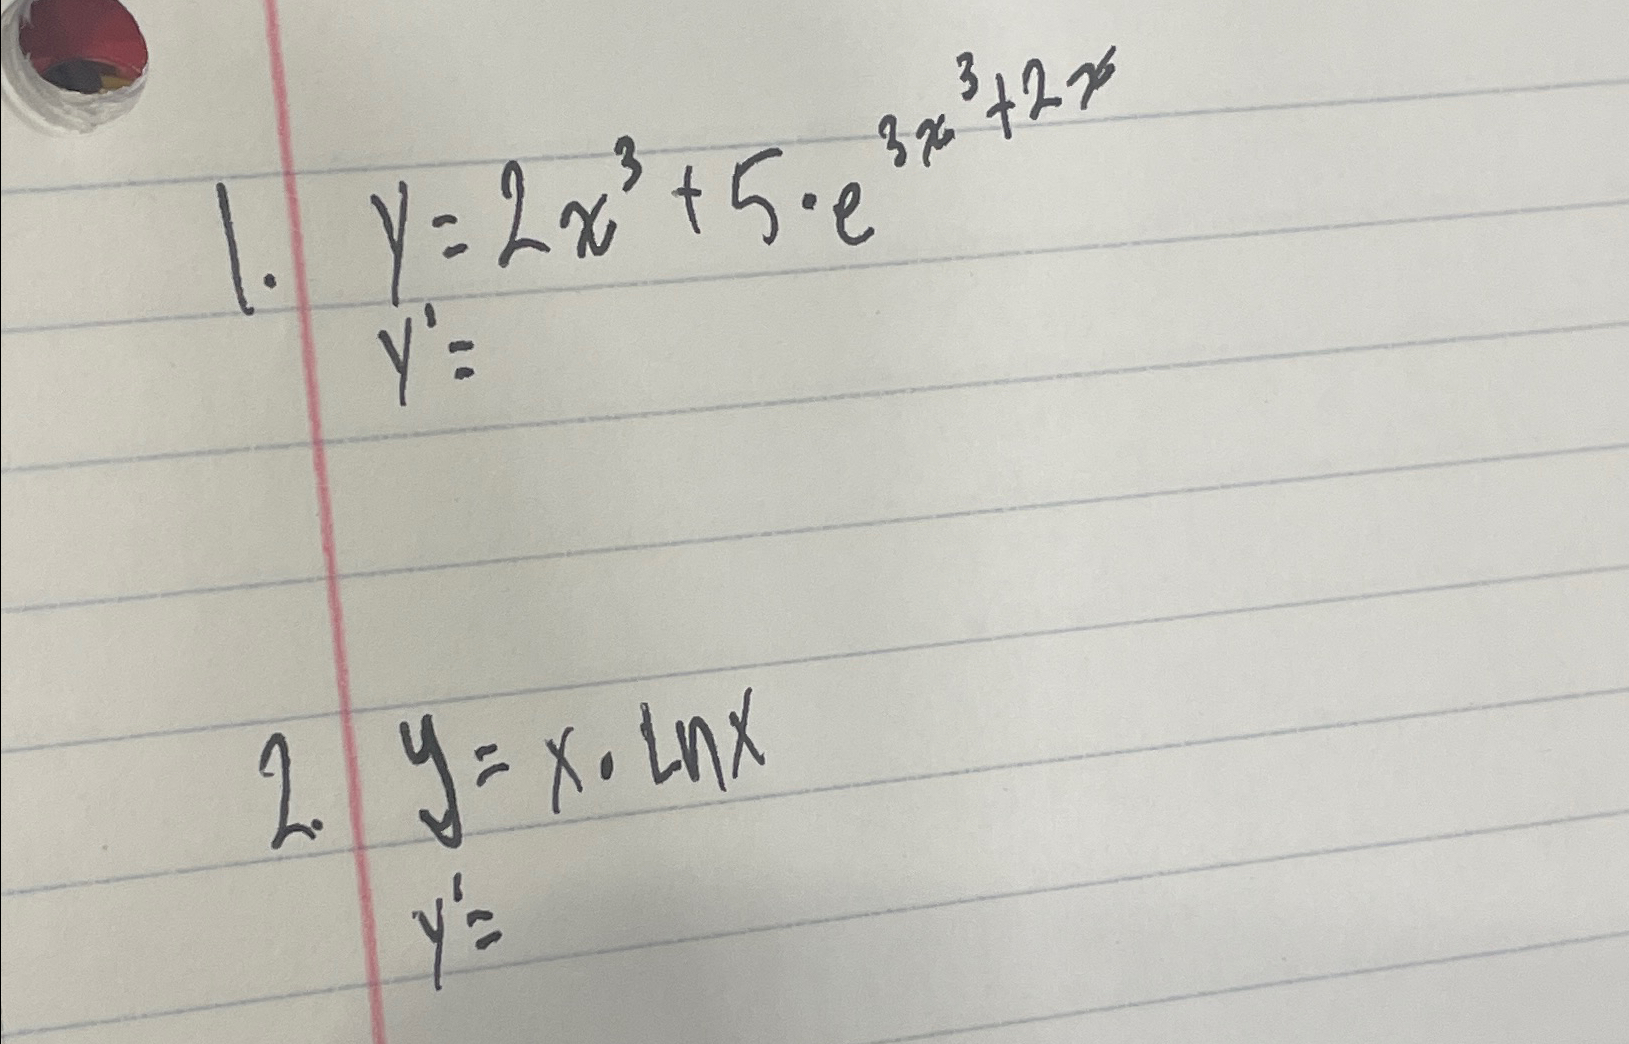 1. y = 2x³ + 5·e^(3x³+2x)
y' =
2. y = x · Ln x
y' =